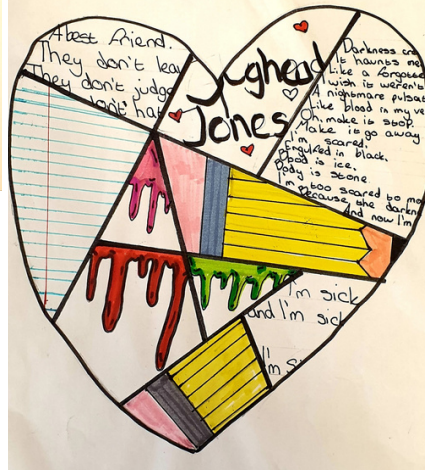 A best friend.
They don't lea
They don't judge
don't hat
Jughead
Jones
Darkness cre
It haunts me
Like a forgotte
I wish it weren't
A nightmare pulsat
Like blood in my ve
Oh, make it stop.
Make it go away
I'm scared.
Engulfed in black.
Blood is ice.
Body is stone
I'm too scared to mo
Because the darkn
And now I'm
I'm sick
and I'm sick
I'm s